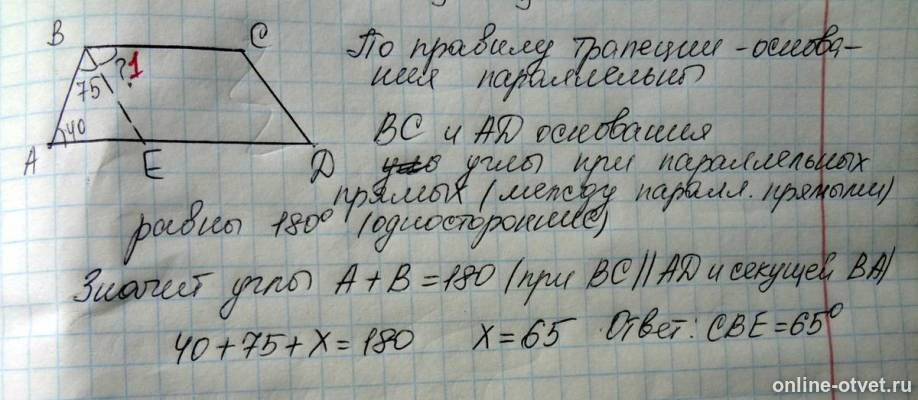 B C
?1
75
40
A E D
По правилу трапеции - основа-
ния параллельны
BC и AD основания
углы при параллельных
прямых (между паралл. прямыми)
равны 180° (односторонние)
Значит углы A + B = 180 (при BC || AD и секущей BA)
40 + 75 + X = 180 X = 65 Ответ: CBE = 65°
online-otvet.ru